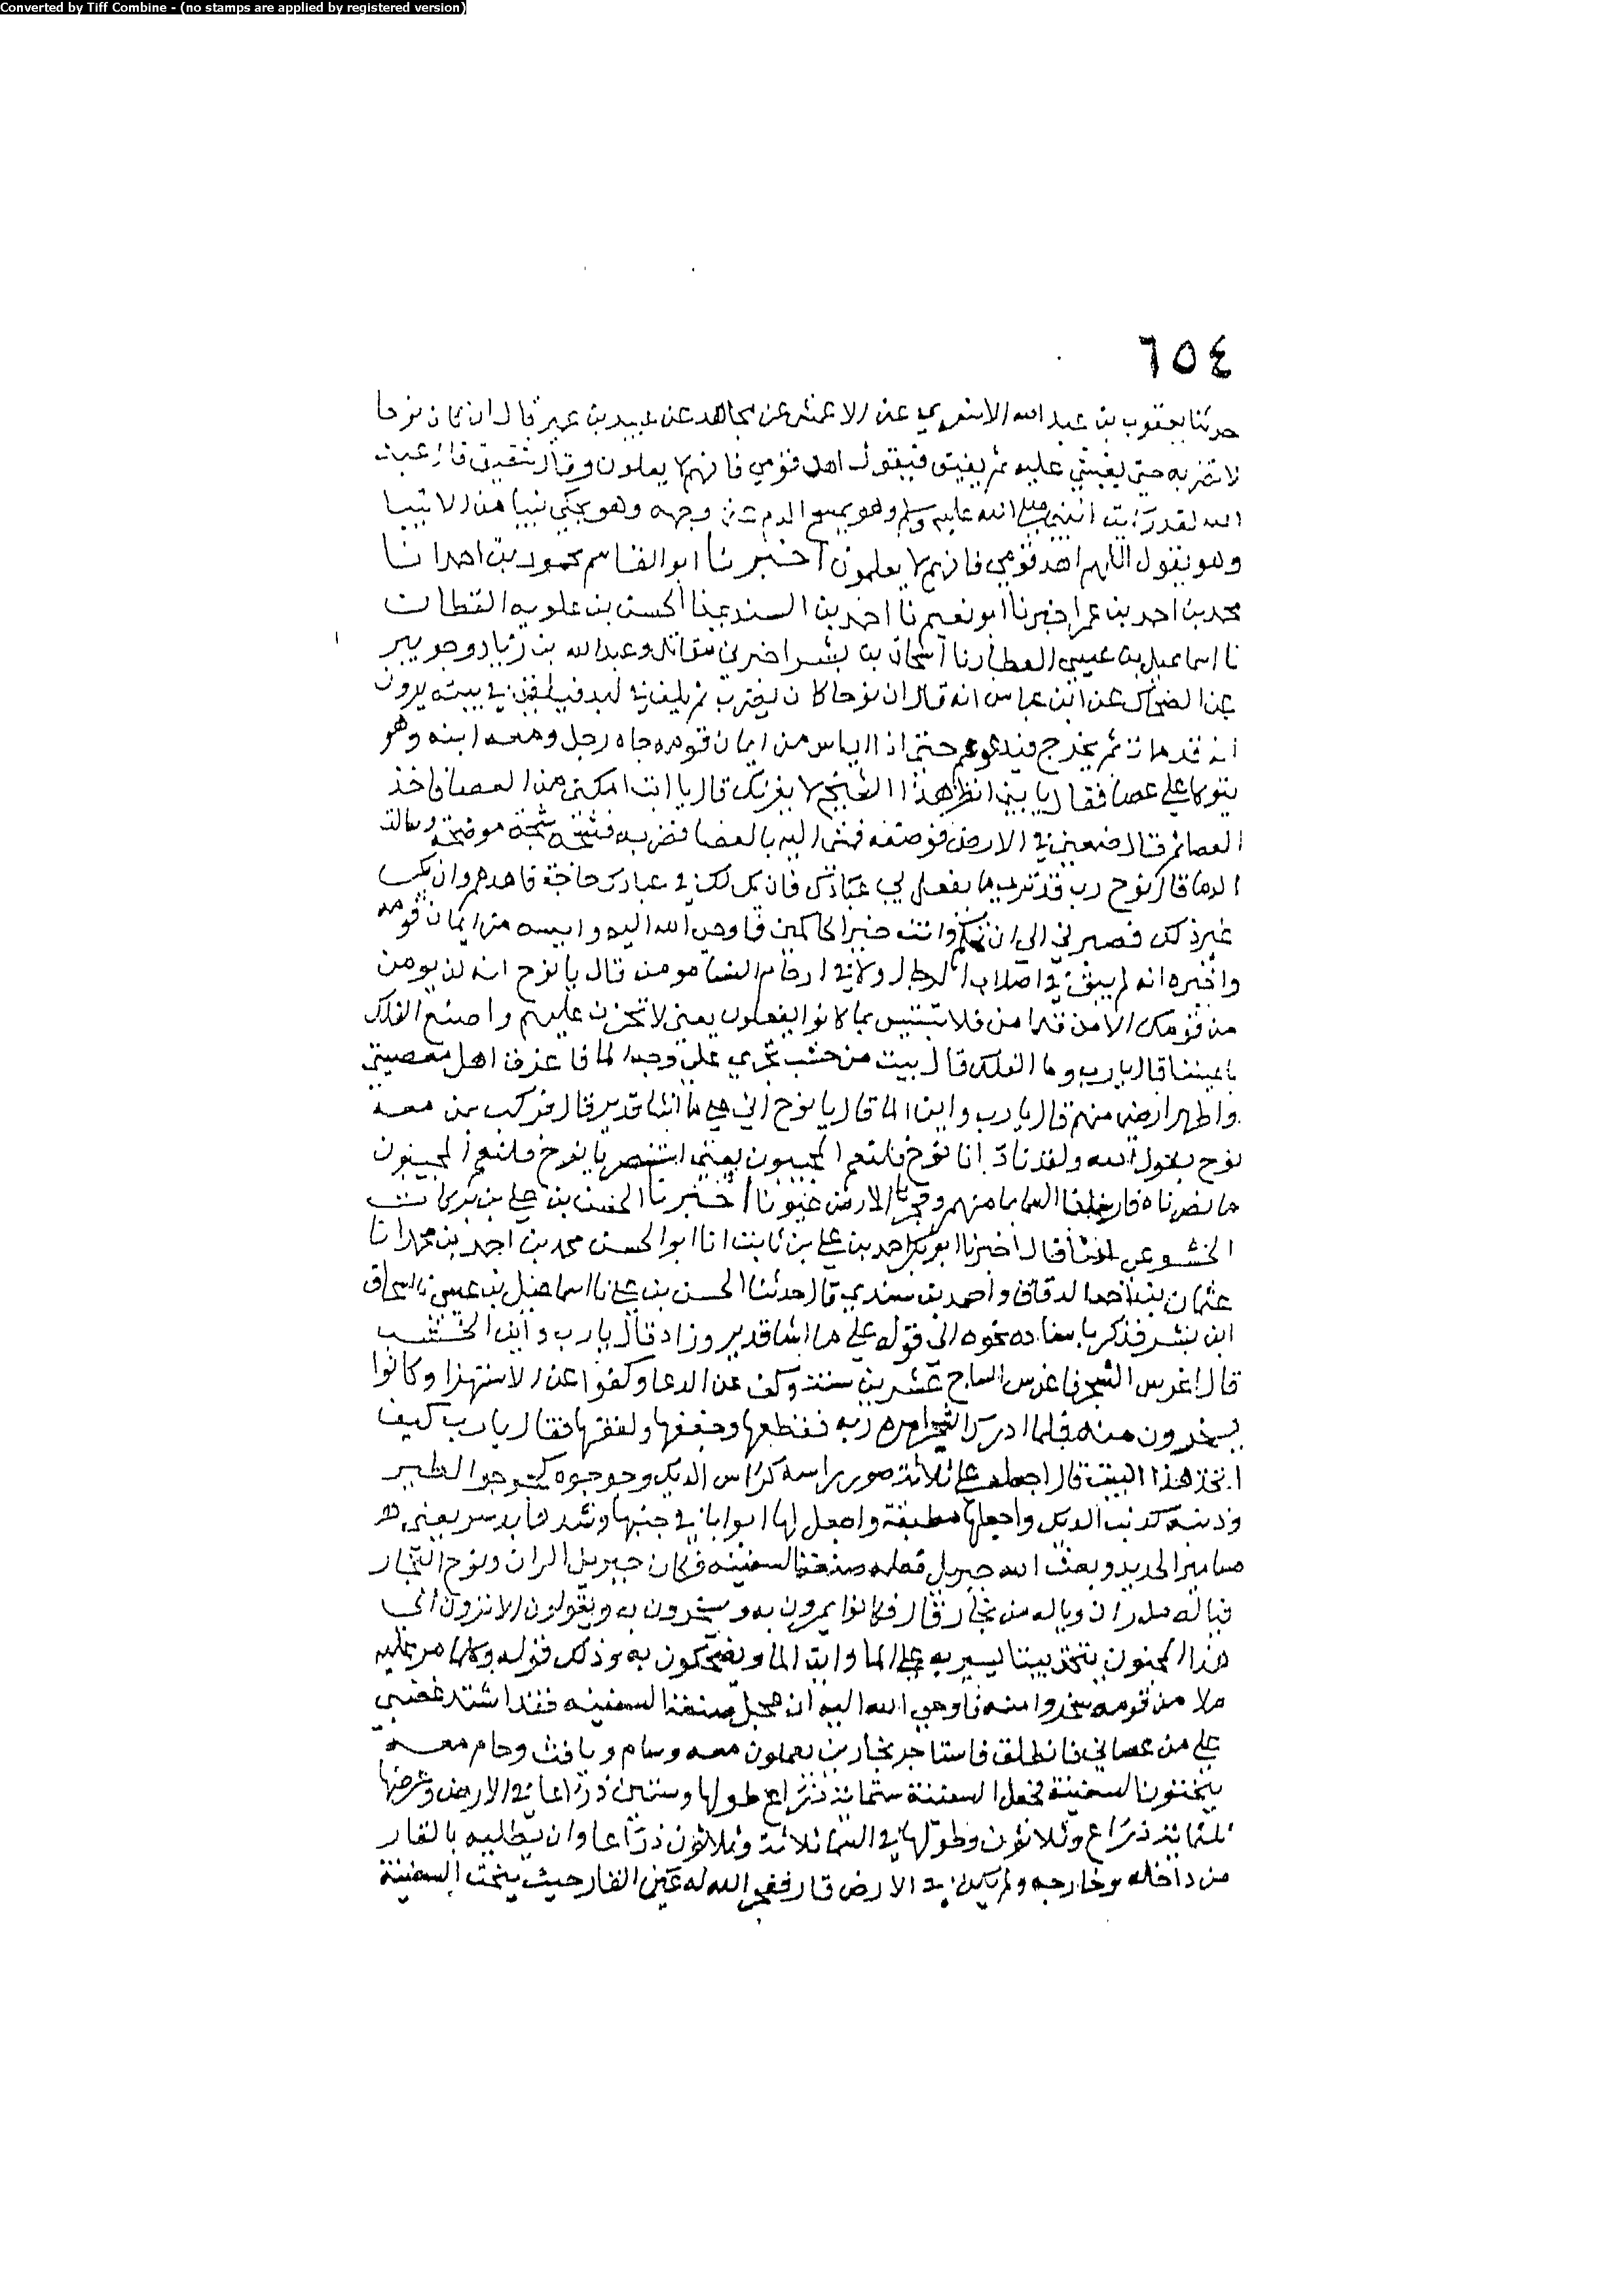 Converted by Tiff Combine - (no stamps are applied by registered version)
٦٥٤
حدثنا يعقوب بن عبد الله الاشعري عن الاعمش عن مجاهد عن عبيد بن عمير قال ان كان نوحا
لا تضربه حتى يغشي عليه ثم يفيق فيقول اهد قومي فانهم لا يعلمون وقال شقيق قال عبد
الله لقد رايت النبي صلى الله عليه وسلم وهو يمسح الدم عن وجهه وهو يحكي نبيا من الانبيا
وهو يقول اللهم اهد قومي فانهم لا يعلمون اخبرنا ابو القاسم محمود بن احمد انا
محمد بن احمد بن عمر اخبرنا ابو نعيم نا احمد بن السندي نا الحسن بن علويه القطان
نا اسماعيل بن عيسى العطار نا اسحاق بن بشر اخبرني مقاتل وعبد الله بن زياد وجويبر
عن الضحاك عن ابن عباس انه قال ان نوحا كان يضرب ثم يلف في لبد فيلقى في بيته يرون
انه قد مات ثم يخرج فيدعوهم حتى اذا اياس من ايمان قومه جاه رجل ومعه ابنه وهو
يتوكا على عصا فقال يا بني انظر هذا الشيخ لا يغرنك قال يا ابت امكني من العصا فاخذ
العصا ثم قال ضعني في الارض فوضعه فمشى اليه بالعصا فضربه فشجه شجة موضحة وسالت
الدما قال نوح رب قد ترى ما يفعل بي عبادك فان يك لك في عبادك حاجة فاهدهم وان يك
غير ذلك فصبرني الى ان تحكم وانت خير الحاكمين فاوحى الله اليه وايسه من ايمان قومه
واخبره انه لم يبق في اصلاب الرجال ولا في ارحام النسا مومن قال يا نوح انه لن يومن
من قومك الا من قد امن فلا تبتئس بما كانوا يفعلون يعني لا تحزن عليهم واصنع الفلك
باعيننا قال يا رب وما الفلك قال بيت من خشب يجري على وجه الما فاغرق اهل معصيتي
واطهر ارضي منهم قال يا رب واين الما قال يا نوح اني على ما اشا قدير قال فركب من معه
نوح يقول الله ولقد نادانا نوح فلنعم المجيبون يعني استنصر يا نوح فلنعم المجيبون
ما نصرناه فارسلنا السما ما منهم وفجرنا الارض عيونا اخبرنا الحسن بن علي بن بركات
الخشوعي قال اخبرنا ابو بكر احمد بن علي بن ثابت انا ابو الحسن محمد بن احمد بن محمد انا
عثمان بن احمد الدقاق واحمد بن سندي قال حدثنا الحسن بن علي نا اسماعيل بن عيسى نا اسحاق
ابن بشر فذكر باسناده نحوه الى قوله على ما اشا قدير وزاد قال يا رب واين الخشب
قال اغرس الشجر فاغرس الساج عشرين سنة وكف عن الدعا وكفوا عن الاستهزا وكانوا
يسخرون منه فلما ادرك الشجر امره ربه فقطعها وجففها ولفقها فقال يا رب كيف
اتخذ هذا البيت قال اجعله على ثلاثة صور راسه كراس الديك وجوجوه كجوجو الطير
وذنبه كذنب الديك واجعلها مطبقة واجعل لها ابوابا في جنبها وشدها بدسر يعني
مسامير الحديد وبعث الله جبريل فعلمه صنعة السفينه فكان جبريل الران ونوح النجار
فكانوا يمرون به ويسخرون به ويقولون الا ترون الى
هذا المجنون يتخذ بيتا ليسير به على الما واين الما ويضحكون به وذلك قوله وكلما مر عليه
ملا من قومه سخروا منه فاوحى الله اليه ان عجل صنعة السفينه فقد اشتد غضبي
على من عصاني فانطلق فاستاجر نجارين يعملون معه وسام ويافث وحام معه
ينحتون السفينة فجعل السفينة ستمائة ذراع طولها وستين ذراعا في الارض وعرضها
ثلثمائة ذراع وثلاثون وطولها في السما ثلاثة وثلاثون ذراعا وان يطليه بالقار
من داخله وخارجه ولم يكن في الارض قار ففجر الله له عين القار حيث ينحت السفينة